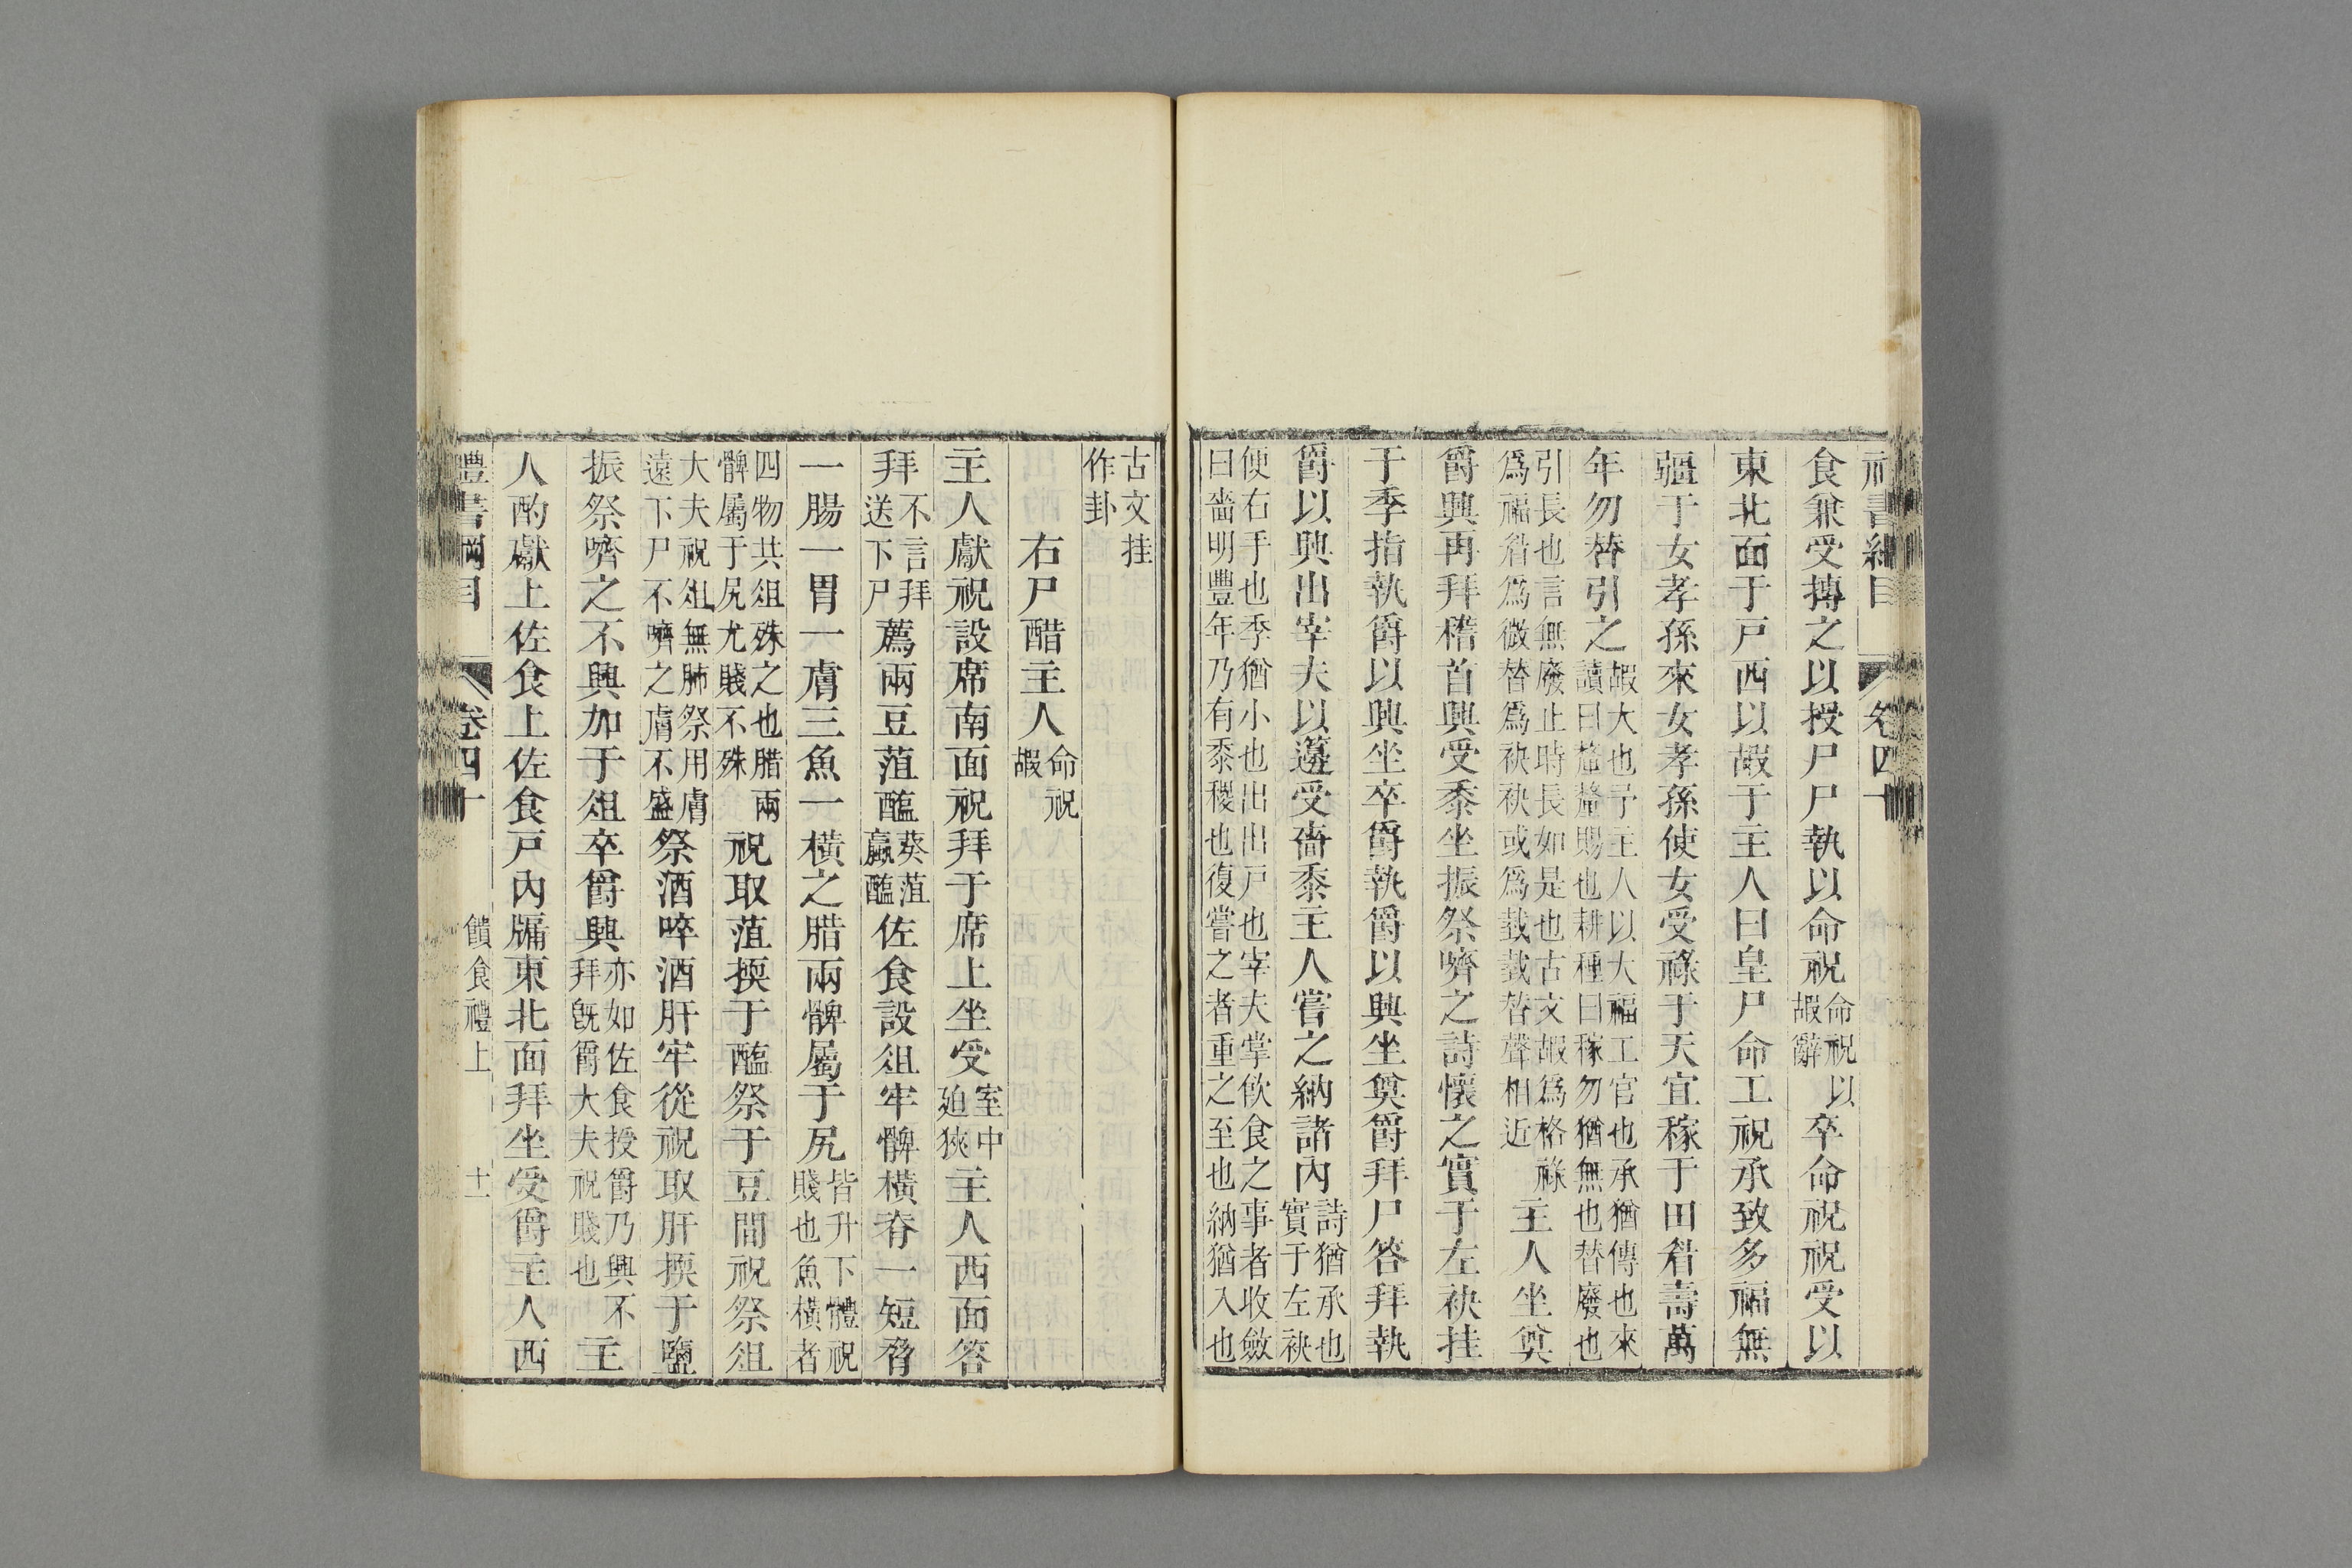 禮書綱目　卷四十
食兼受摶之以授尸尸執以命祝命祝以嘏辭卒命祝祝受以
東北面于戸西以嘏于主人曰皇尸命工祝承致多福無
疆于女孝孫來女孝孫使女受祿于天宜稼于田眉壽萬
年勿替引之嘏大也予主人以大福工官也承猶傳也來讀曰釐釐賜也耕種曰稼勿猶無也替廢也
引長也言無廢止時長如是也古文嘏爲格祿爲福眉爲微替爲袂袂或爲㦰㦰替聲相近主人坐奠
爵興再拜稽首興受黍坐振祭嚌之詩懷之實于左袂挂
于季指執爵以興坐卒爵執爵以興坐奠爵拜尸答拜執
爵以興出宰夫以籩受嗇黍主人嘗之納諸內詩猶承也實于左袂
便右手也季猶小也出出戸也宰夫掌飮食之事者收斂曰嗇明豐年乃有黍稷也復嘗之者重之至也納猶入也
古文挂作卦
右尸醋主人命祝嘏
主人獻祝設席南面祝拜于席上坐受室中迫狹主人西面答
拜不言拜送下尸薦兩豆菹醢葵菹蠃醢佐食設俎牢髀橫脊一短脅
一腸一胃一膚三魚一橫之腊兩髀屬于尻皆升下體祝賤也魚橫者
四物共俎殊之也腊兩髀屬于尻尤賤不殊祝取菹擩于醢祭于豆間祝祭俎
大夫祝俎無肺祭用膚遠下尸不嚌之膚不盛祭酒啐酒肝牢從祝取肝擩于鹽
振祭嚌之不興加于俎卒爵興亦如佐食授爵乃興不拜旣爵大夫祝賤也主
人酌獻上佐食上佐食戸內牖東北面拜坐受爵主人西
禮書綱目　卷四十　饋食禮上　十一